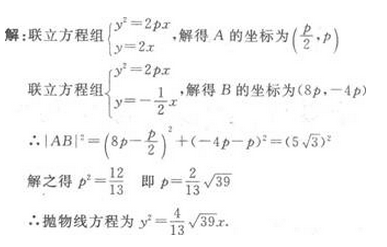 解:联立方程组{y²=2px y=2x,解得 A 的坐标为(p/2,p)
联立方程组{y²=2px y=-1/2x,解得 B 的坐标为(8p,-4p)
∴|AB|²=(8p-p/2)²+(-4p-p)²=(5√3)²
解之得 p²=12/13 即 p=2/13√39
∴抛物线方程为 y²=4/13√39x.